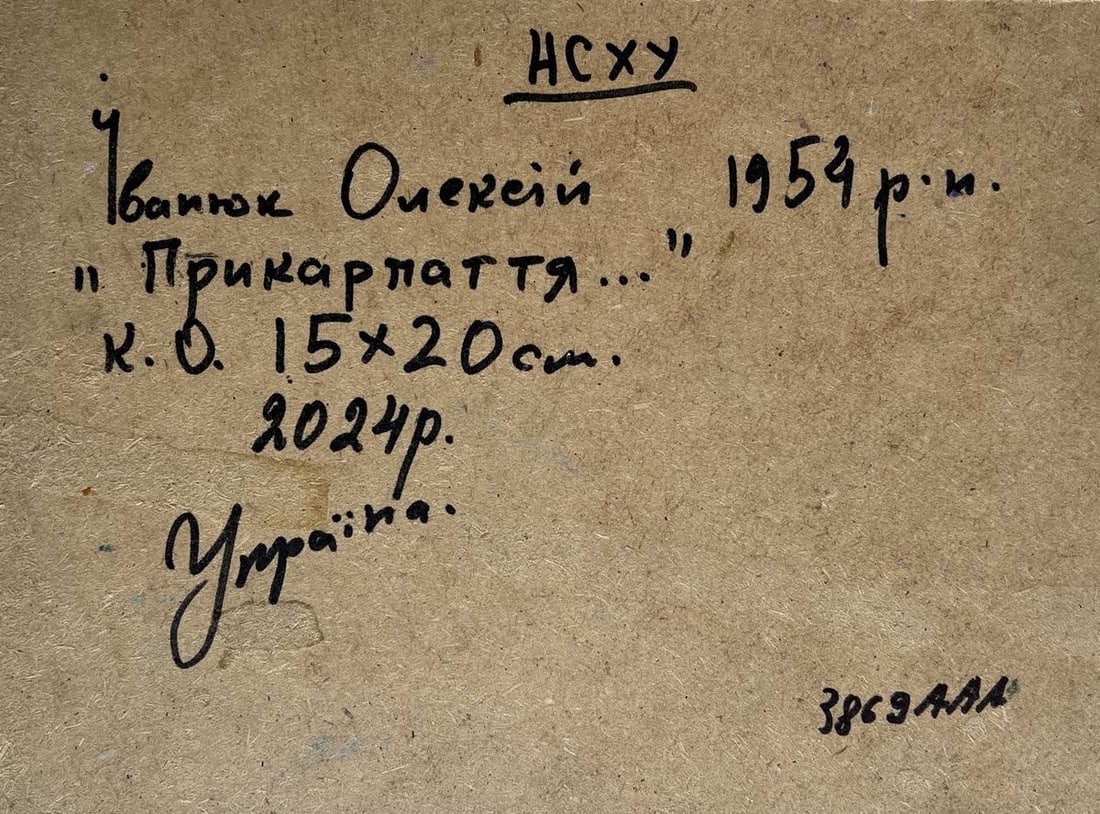 НСХУ
Іванюк Олексій 1954 р.н.
"Прикарпаття..."
к.о. 15×20 см.
2024р.
Україна.
3869ААА